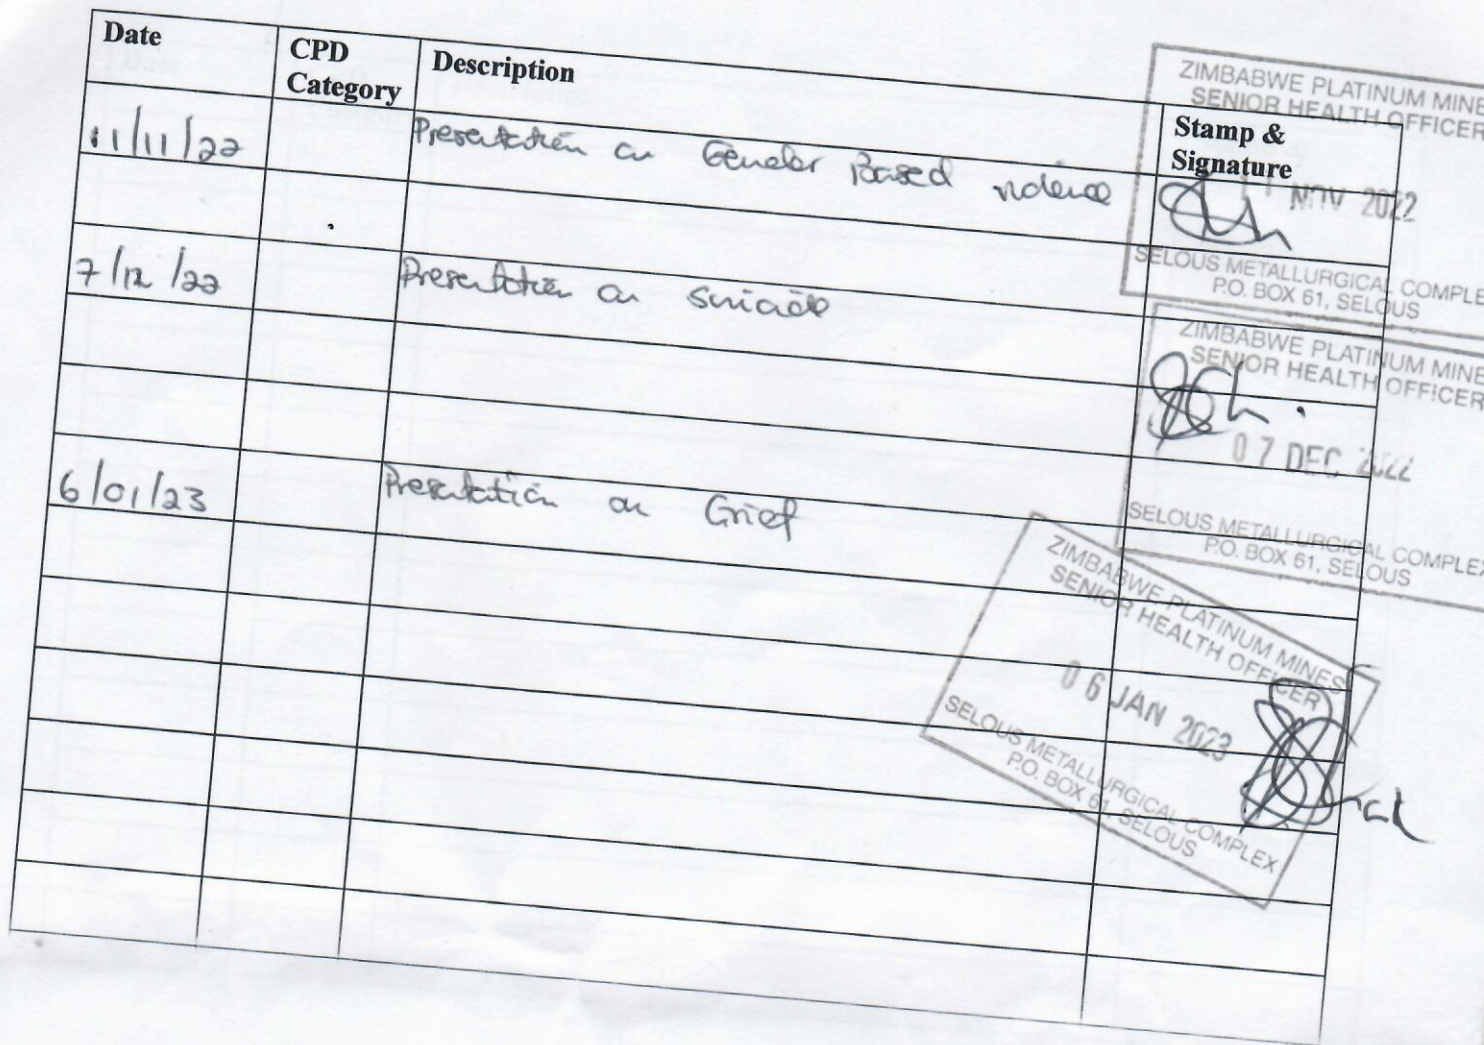 Date
CPD Category
Description
Stamp & Signature
11/11/22
Presentation on Gender Based violence
ZIMBABWE PLATINUM MINE
SENIOR HEALTH OFFICER
11 NOV 2022
SELOUS METALLURGICAL COMPLE
P.O. BOX 61, SELOUS
7/12/22
Presentation on suicide
ZIMBABWE PLATINUM MINE
SENIOR HEALTH OFFICER
07 DEC 2022
SELOUS METALLURGICAL COMPLEX
P.O. BOX 61, SELOUS
6/01/23
Presentation on Grief
ZIMBABWE PLATINUM MINES
SENIOR HEALTH OFFICER
06 JAN 2023
SELOUS METALLURGICAL COMPLEX
P.O. BOX 61, SELOUS